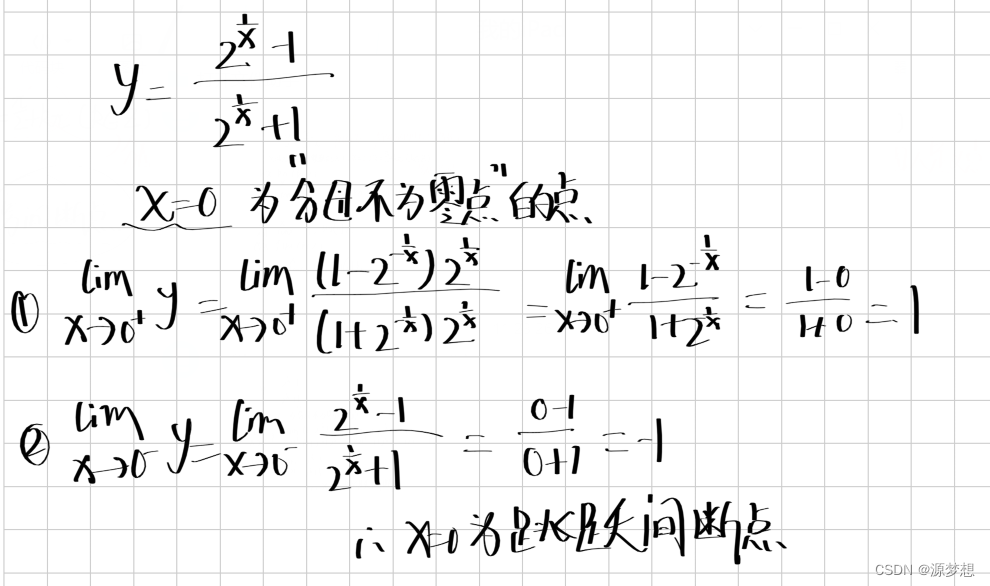 y = \frac{2^{\frac{1}{x}}-1}{2^{\frac{1}{x}}+1}
x=0 为"分母不为零点"的点
① \lim_{x→0^+} y = \lim_{x→0^+} \frac{(1-2^{-\frac{1}{x}})2^{\frac{1}{x}}}{(1+2^{-\frac{1}{x}})2^{\frac{1}{x}}} = \lim_{x→0^+} \frac{1-2^{-\frac{1}{x}}}{1+2^{-\frac{1}{x}}} = \frac{1-0}{1+0} = 1
② \lim_{x→0^-} y = \lim_{x→0^-} \frac{2^{\frac{1}{x}}-1}{2^{\frac{1}{x}}+1} = \frac{0-1}{0+1} = -1
∴ x=0 为跳跃间断点
CSDN @源梦想